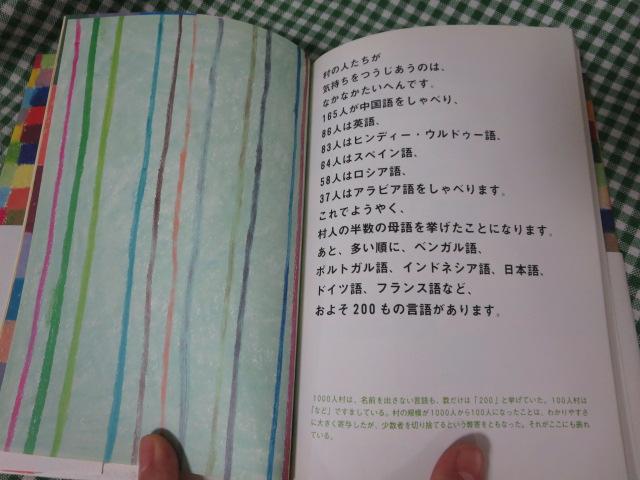 村の人たちが
気持ちをつうじあうのは、
なかなかたいへんです。
165人が中国語をしゃべり、
86人は英語、
83人はヒンディー・ウルドゥー語、
64人はスペイン語、
58人はロシア語、
37人はアラビア語をしゃべります。
これでようやく、
村人の半数の母語を挙げたことになります。
あと、多い順に、ベンガル語、
ポルトガル語、インドネシア語、日本語、
ドイツ語、フランス語など、
およそ200もの言語があります。
1000人村は、名前を出さない言語も、数だけは「200」と挙げていた。100人村は
「など」ですましている。村の規模が1000人から100人になったことは、わかりやすさ
に大きく寄与したが、少数者を切り捨てるという弊害をともなった。それがここにも表れ
ている。